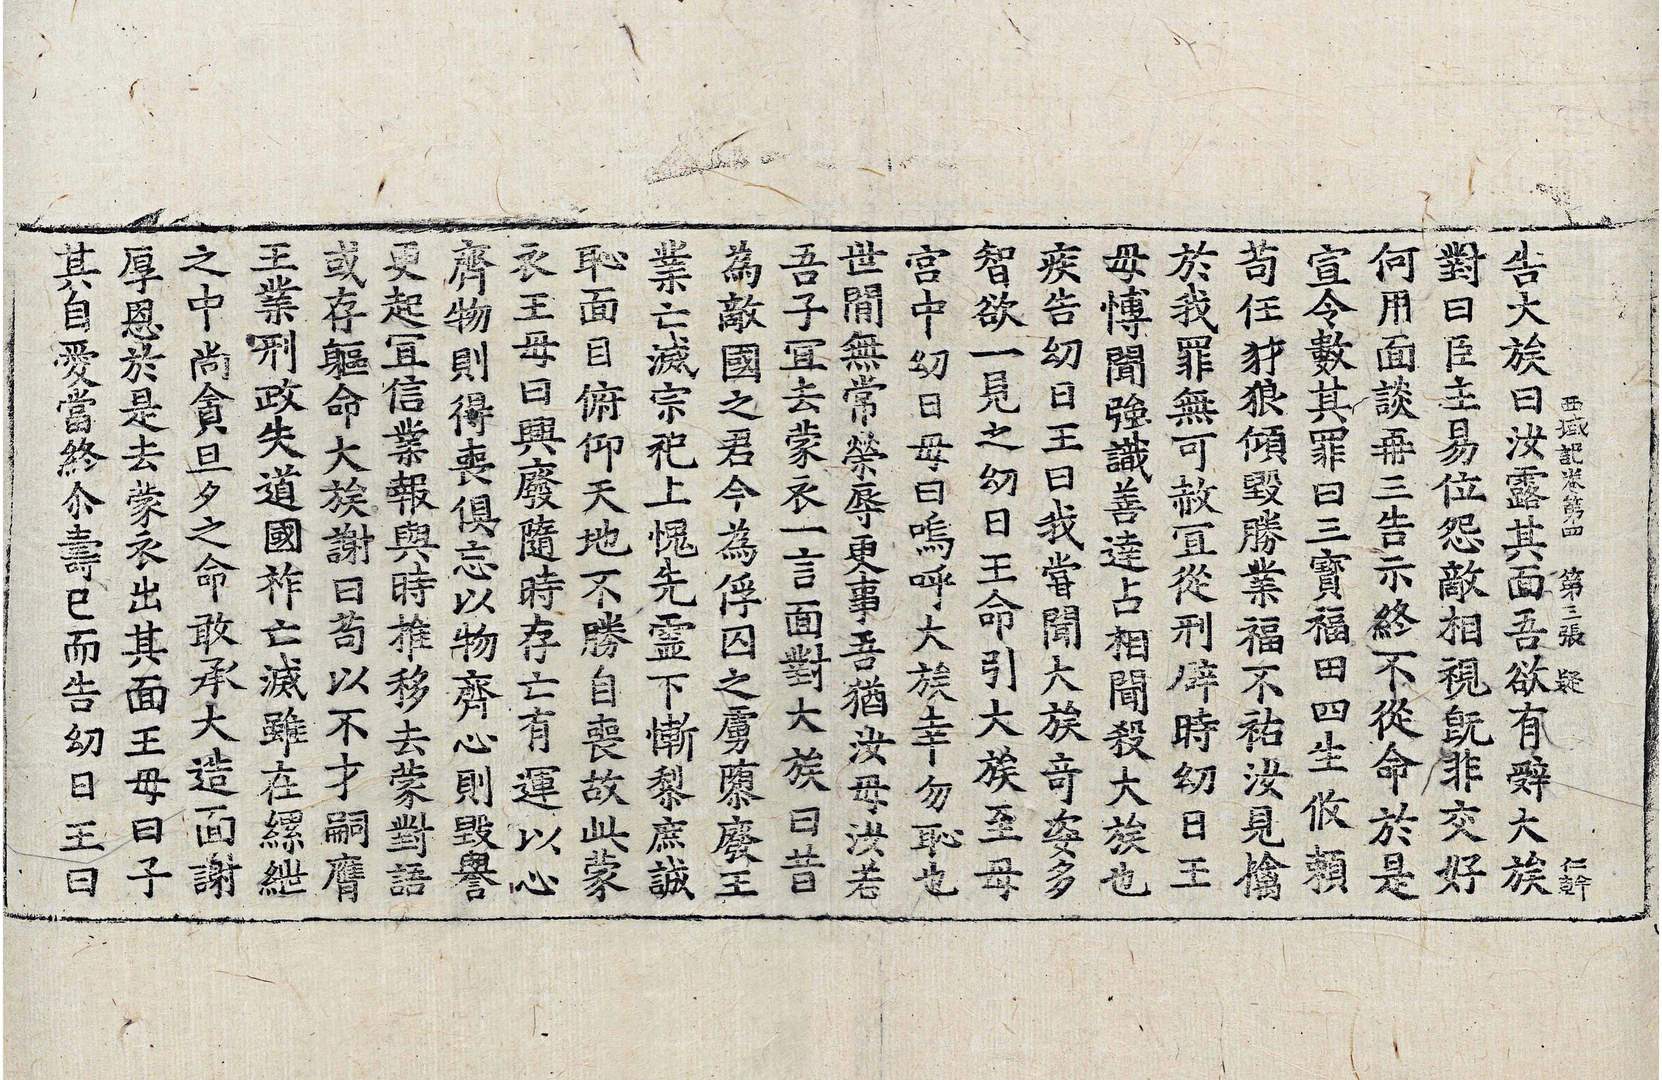 西域記卷第四　第三張　疑　仁幹
告大族曰汝露其面吾欲有辭大族
對曰臣主易位怨敵相視旣非交好
何用面談再三告示終不從命於是
宣令數其罪曰三寶福田四生攸頼
苟任豺狼傾毀勝業福不祐汝見擒
於我罪無可赦宜從刑辟時幼日王
母愽聞強識善達占相聞殺大族也
疾告幼日王曰我嘗聞大族竒姿多
智欲一見之幼日王命引大族至母
宮中幼日母曰嗚呼大族幸勿恥也
世閒無常榮辱更事吾猶汝母汝若
吾子宜去蒙衣一言面對大族曰昔
為敵國之君今為俘囚之虜隳廢王
業亡滅宗祀上愧先靈下慚黎庶誠
恥面目俯仰天地不勝自喪故此蒙
衣王母曰興廢隨時存亡有運以心
齊物則得喪俱忘以物齊心則毀譽
更起宜信業報與時推移去蒙對語
或存軀命大族謝曰苟以不才嗣膺
王業刑政失道國祚亡滅雖在縲紲
之中尚貪旦夕之命敢承大造面謝
厚恩於是去蒙衣出其面王母曰子
其自愛當終尒壽已而告幼日王曰